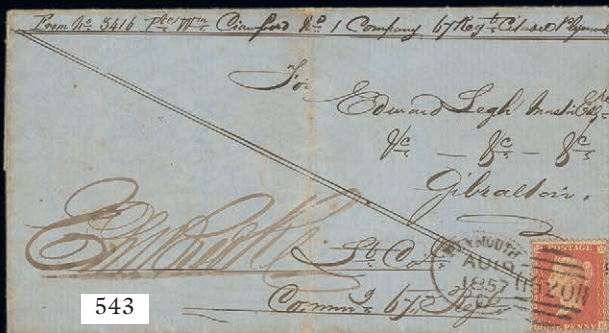 From No 3416 Wm Crawford No 1 Company 67 Regt Citadel Plymo
For
Edward Legh
&c — &c — &c
Gibraltar.
Lt Col
Commg 67 Regt
PLYMOUTH
AU 19
1857
620
POSTAGE
ONE PENNY
543